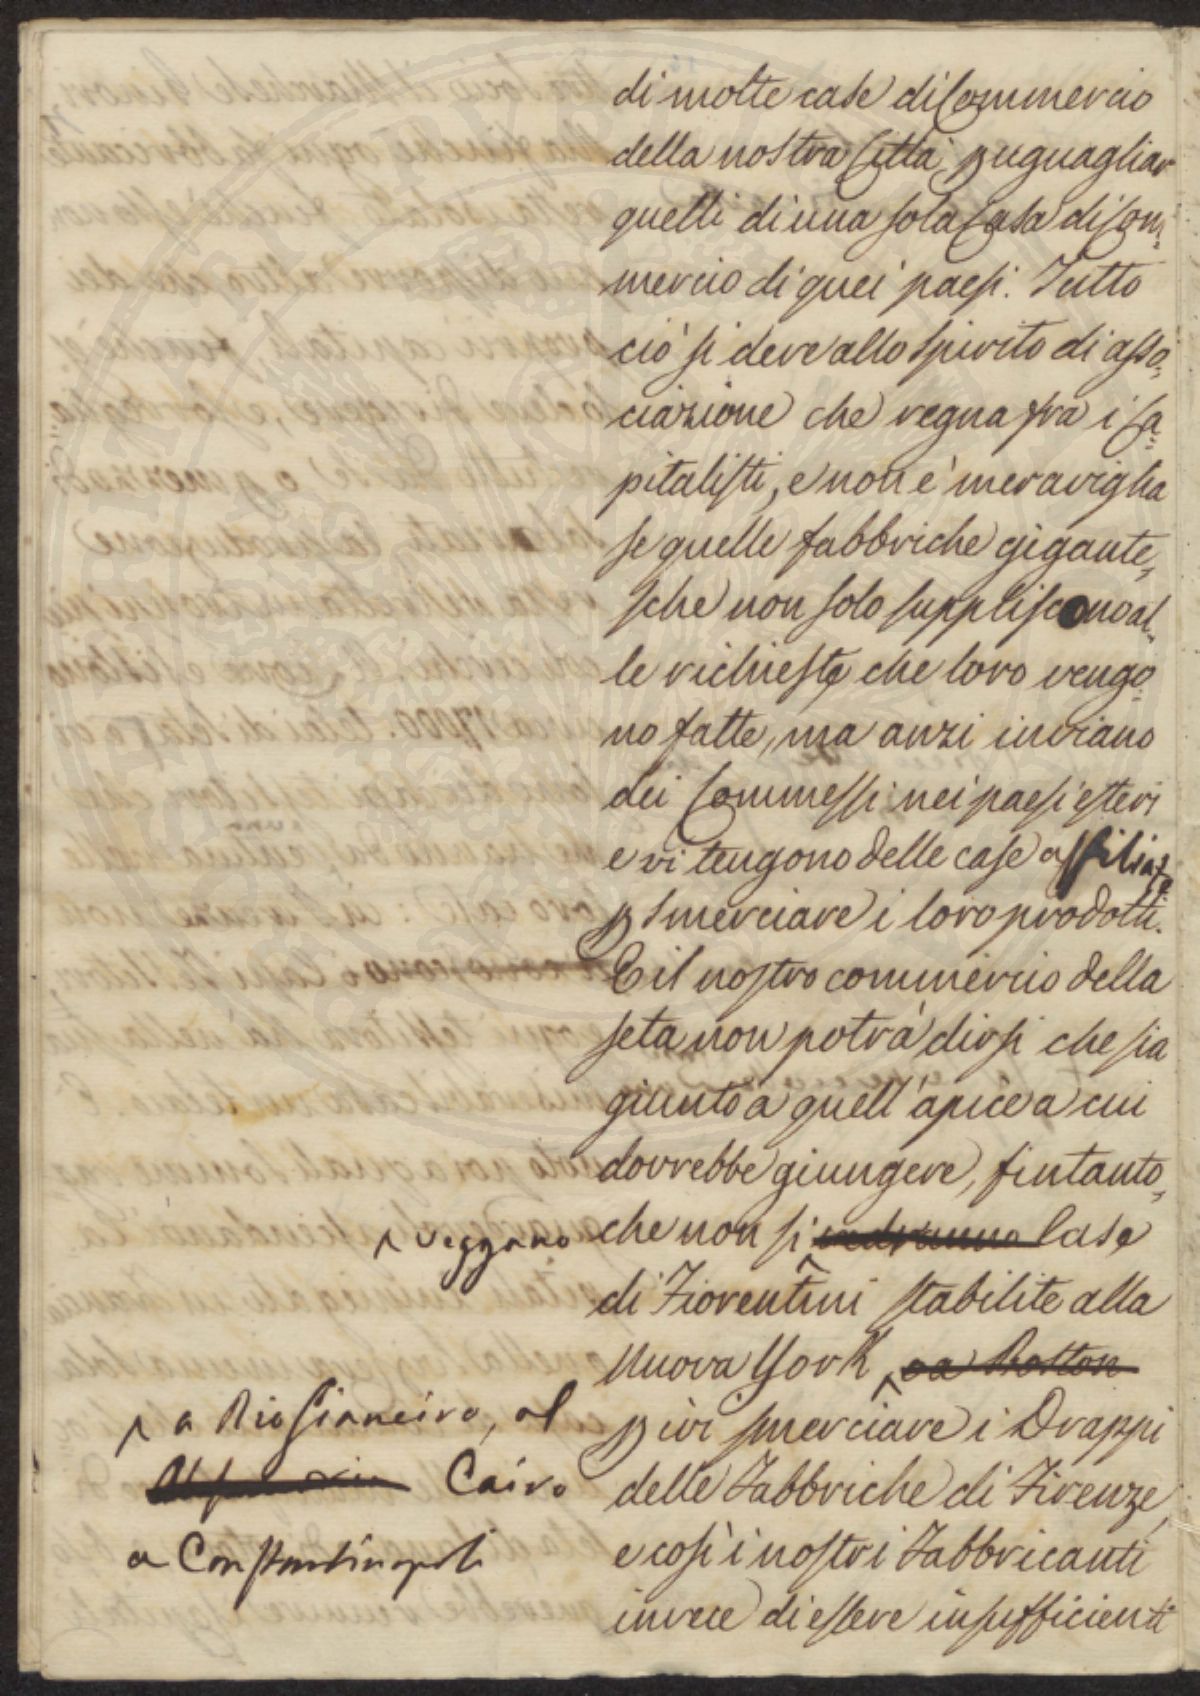 di molte case di Commercio
della nostra Città, p uguagliar
quelli di una sola Casa di Com=
mercio di quei paesi. Tutto
ciò si deve allo spirito di asso=
ciazione che regna fra i Ca=
pitalisti, e non è meraviglia
se quelle fabbriche gigante=
sche non solo suppliscono al=
le richieste che loro vengo=
no fatte, ma anzi inviano
dei Commessi nei paesi esteri
e vi tengono delle case affiliate
p smerciare i loro prodotti.
E il nostro commercio della
seta non potrà dirsi che sia
giunto a quell'apice a cui
dovrebbe giungere, fintanto=
che non si ^ vedranno Case
^ veggano
di Fiorentini stabilite alla
Nuova York ^ o a Boston
^ a Rio Gianeiro, al
Cairo
a Constantinopoli
p ivi smerciare i Drappi
delle Fabbriche di Firenze,
e così i nostri Fabbricanti
invece di essere insufficienti